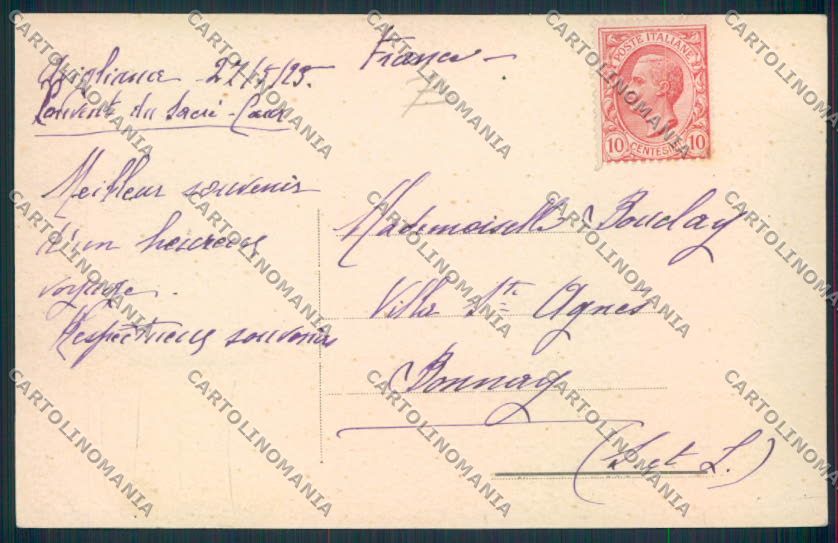 Avigliana 27/5/25.
Couvent du Sacré-Cœur
France
POSTE ITALIANE
10 CENTESIMI 10
Meilleur souvenir
d'un heureux
voyage.
Respectueux souvenirs
Mademoiselle Bouclay
Villa Ste Agnes
Bonnay
(S et L.)
CARTOLINOMANIA